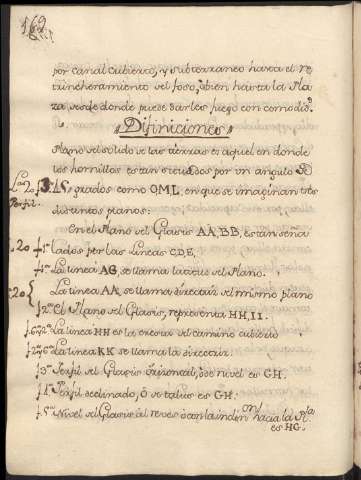 162
por canal cubierto, y subterraneo hasta el re
trincheramiento del foso, ó bien hasta la Pla
za desde donde puede darles fuego con comodid.d
Difiniciones
Plano del solido de las tierras es aquel en donde
los hornillos estan situados por un angulo de
45 grados como QML en que se imaginan tres
distintos planos:
En el Plano del Glasis AA, BB, estan seña
lados por las Lineas C.D.E.
La linea AG, se llama la altura del Plano.
La linea AA, se llama directriz del mismo plano
El Plano del Glasis, representa HH, II.
La linea HH es la cresta del camino cubierto
La linea KK se llama la directriz.
Perfil del Glasis orizontal, ó de nivel es GH.
Perfil declinado, ó de talus es GH.
Nivel del Glasis al reves ó con la inclin.on hacia la Pla
es HG.